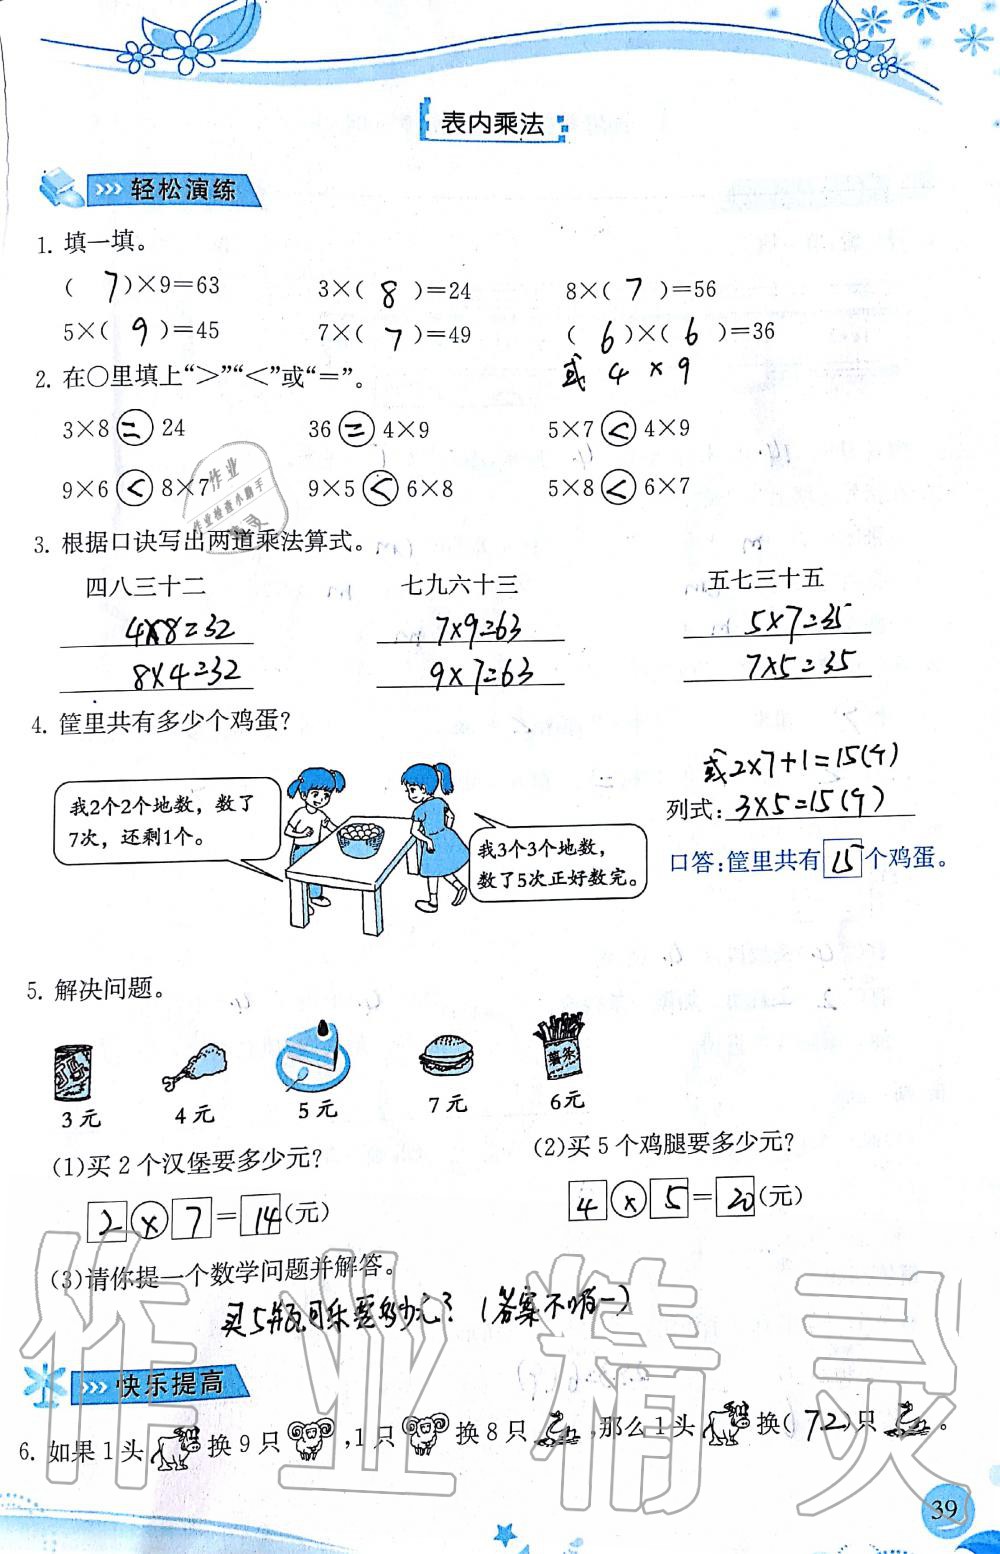 表内乘法
轻松演练
1. 填一填。
( 7 )×9=63 3×( 8 )=24 8×( 7 )=56
5×( 9 )=45 7×( 7 )=49 ( 6 )×( 6 )=36
2. 在○里填上“>”“<”或“=”。 或 4×9
3×8 = 24 36 = 4×9 5×7 < 4×9
9×6 < 8×7 9×5 < 6×8 5×8 < 6×7
3. 根据口诀写出两道乘法算式。
四八三十二 七九六十三 五七三十五
4×8=32 7×9=63 5×7=35
8×4=32 9×7=63 7×5=35
4. 筐里共有多少个鸡蛋?
或2×7+1=15(个)
我2个2个地数，数了
7次，还剩1个。
我3个3个地数，
数了5次正好数完。
列式: 3×5=15(个)
口答:筐里共有 15 个鸡蛋。
5. 解决问题。
薯条
3元 4元 5元 7元 6元
(1)买2个汉堡要多少元?
2 × 7 = 14 (元)
(2)买5个鸡腿要多少元?
4 × 5 = 20 (元)
(3)请你提一个数学问题并解答。
买5瓶可乐要多少元?(答案不唯一)
快乐提高
6. 如果1头 换9只 ,1只 换8只 ,那么1头 换( 72 )只 。
39
作业
作业检查小助手
精灵
作业精灵